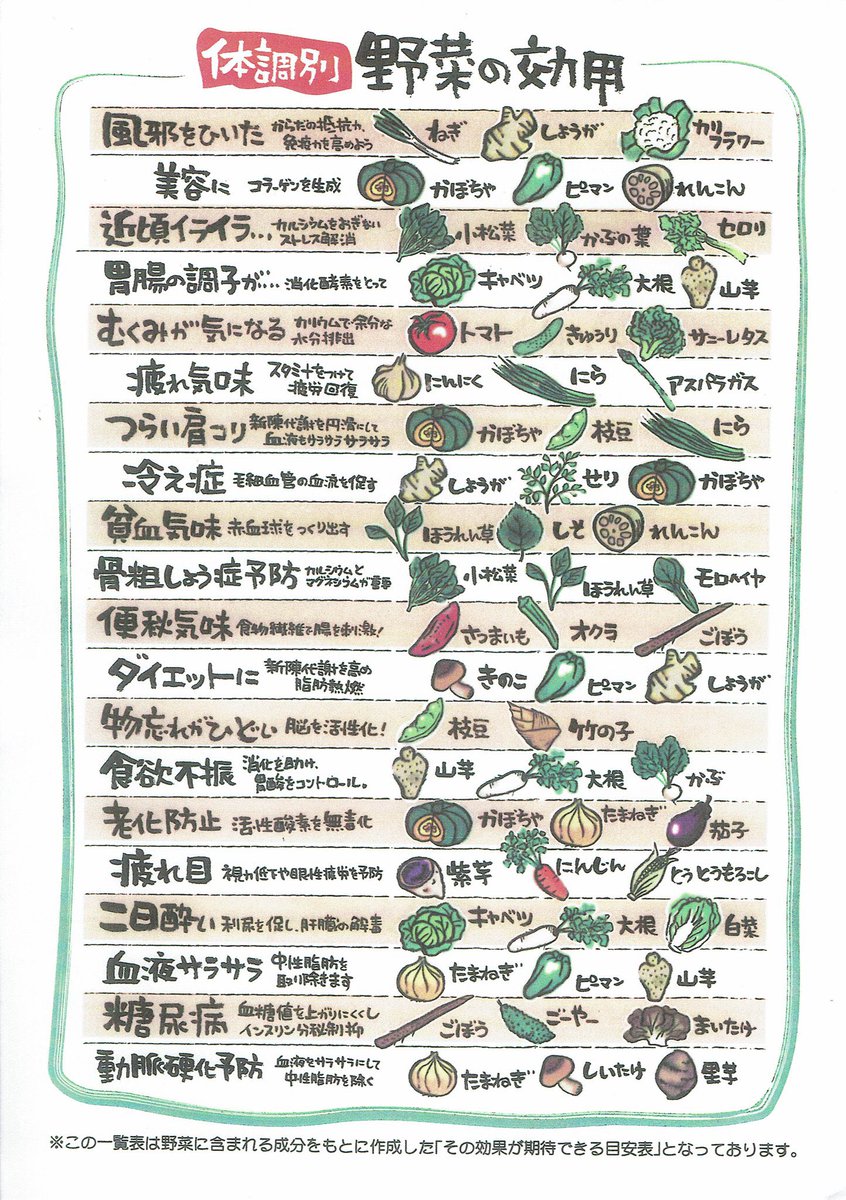 体調別 野菜の効用
風邪をひいた からだの抵抗力、免疫力を高めよう ねぎ しょうが カリフラワー
美容に コラーゲンを生成 かぼちゃ ピーマン れんこん
近頃イライラ… カルシウムをおぎないストレス解消 小松菜 かぶの葉 セロリ
胃腸の調子が… 消化酵素をとって キャベツ 大根 山芋
むくみが気になる カリウムで余分な水分排出 トマト きゅうり サニーレタス
疲れ気味 スタミナをつけて疲労回復 にんにく にら アスパラガス
つらい肩コリ 新陳代謝を円滑にして血液もサラサラサラサラ かぼちゃ 枝豆 にら
冷え症 毛細血管の血流を促す しょうが せり かぼちゃ
貧血気味 赤血球をつくり出す ほうれん草 しそ れんこん
骨粗しょう症予防 カルシウムとマグネシウムが 小松菜 ほうれん草 モロヘイヤ
便秘気味 食物繊維で腸を刺激! さつまいも オクラ ごぼう
ダイエットに 新陳代謝を高め脂肪熱燃 きのこ ピーマン しょうが
物忘れがひどい 脳を活性化! 枝豆 竹の子
食欲不振 消化を助け、胃酸をコントロール。 山芋 大根 かぶ
老化防止 活性酸素を無毒化 かぼちゃ たまねぎ 茄子
疲れ目 視力低下や眼性疲労を予防 紫芋 にんじん とうとうもろこし
二日酔い 利尿を促し、肝臓の解毒 キャベツ 大根 白菜
血液サラサラ 中性脂肪を取り除きます たまねぎ ピーマン 山芋
糖尿病 血糖値を上がりにくくしインスリン分秘制御 ごぼう ごーやー まいたけ
動脈硬化予防 血液をサラサラにして中性脂肪を除く たまねぎ しいたけ 里芋
※この一覧表は野菜に含まれる成分をもとに作成した「その効果が期待できる目安表」となっております。